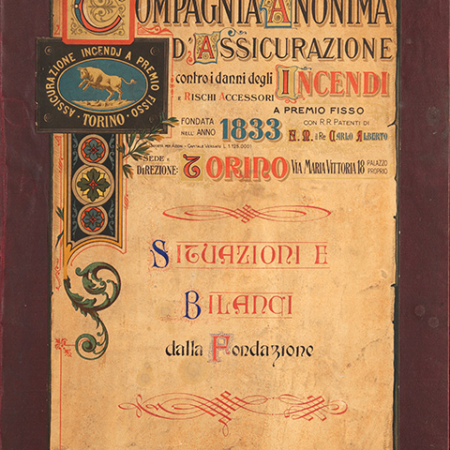 COMPAGNIA ANONIMA
D'ASSICURAZIONE
contro i danni degli INCENDI
E RISCHI ACCESSORI
A PREMIO FISSO
FONDATA NELL' ANNO 1833 CON R.R. PATENTI DI S. M. il Re CARLO ALBERTO
SEDE E DIREZIONE: TORINO VIA MARIA VITTORIA 18 PALAZZO PROPRIO
ASSICURAZIONE INCENDJ A PREMIO FISSO
TORINO
SITUAZIONI E
BILANCI
dalla Fondazione